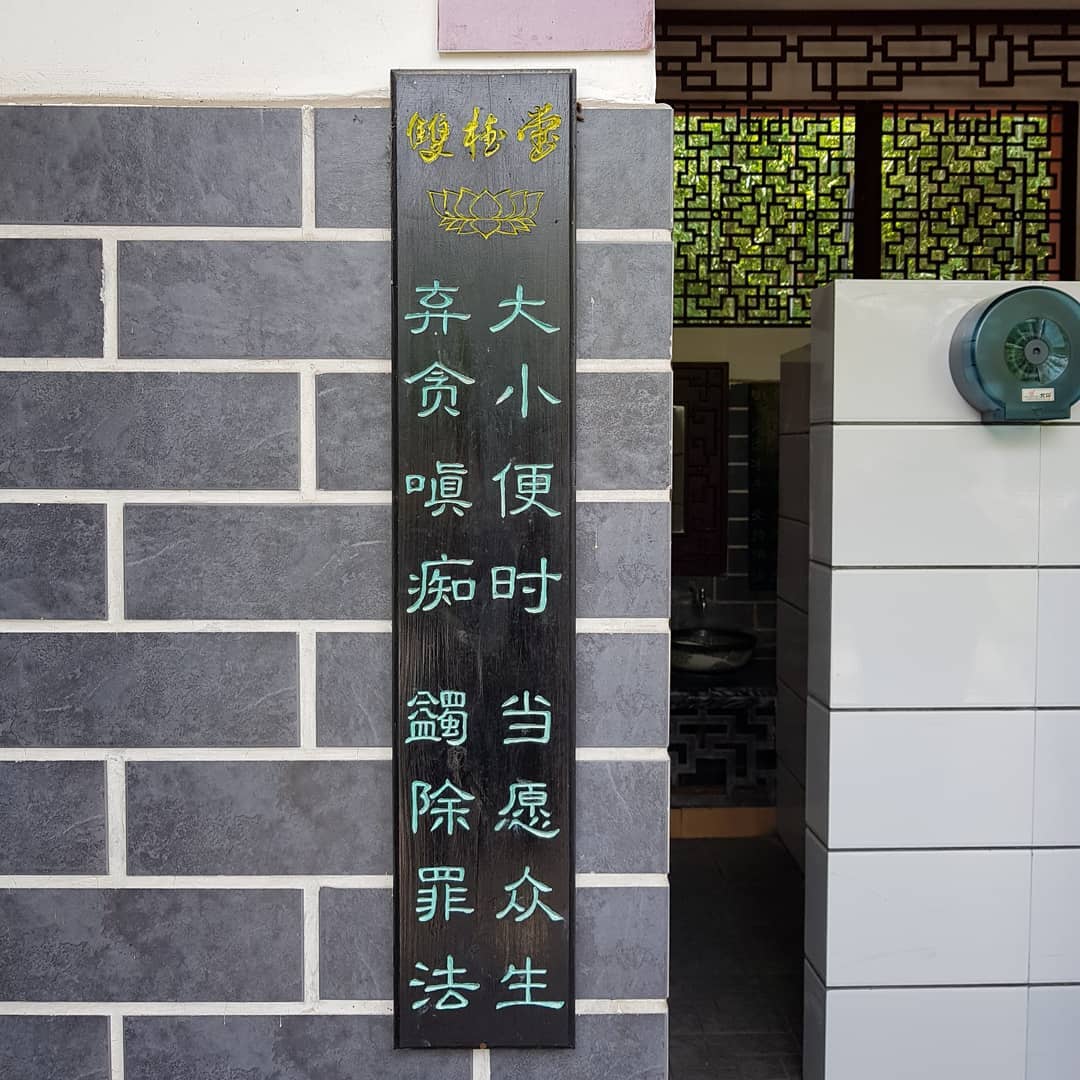 雙桂堂
大小便时 当愿众生
弃贪嗔痴 蠲除罪法